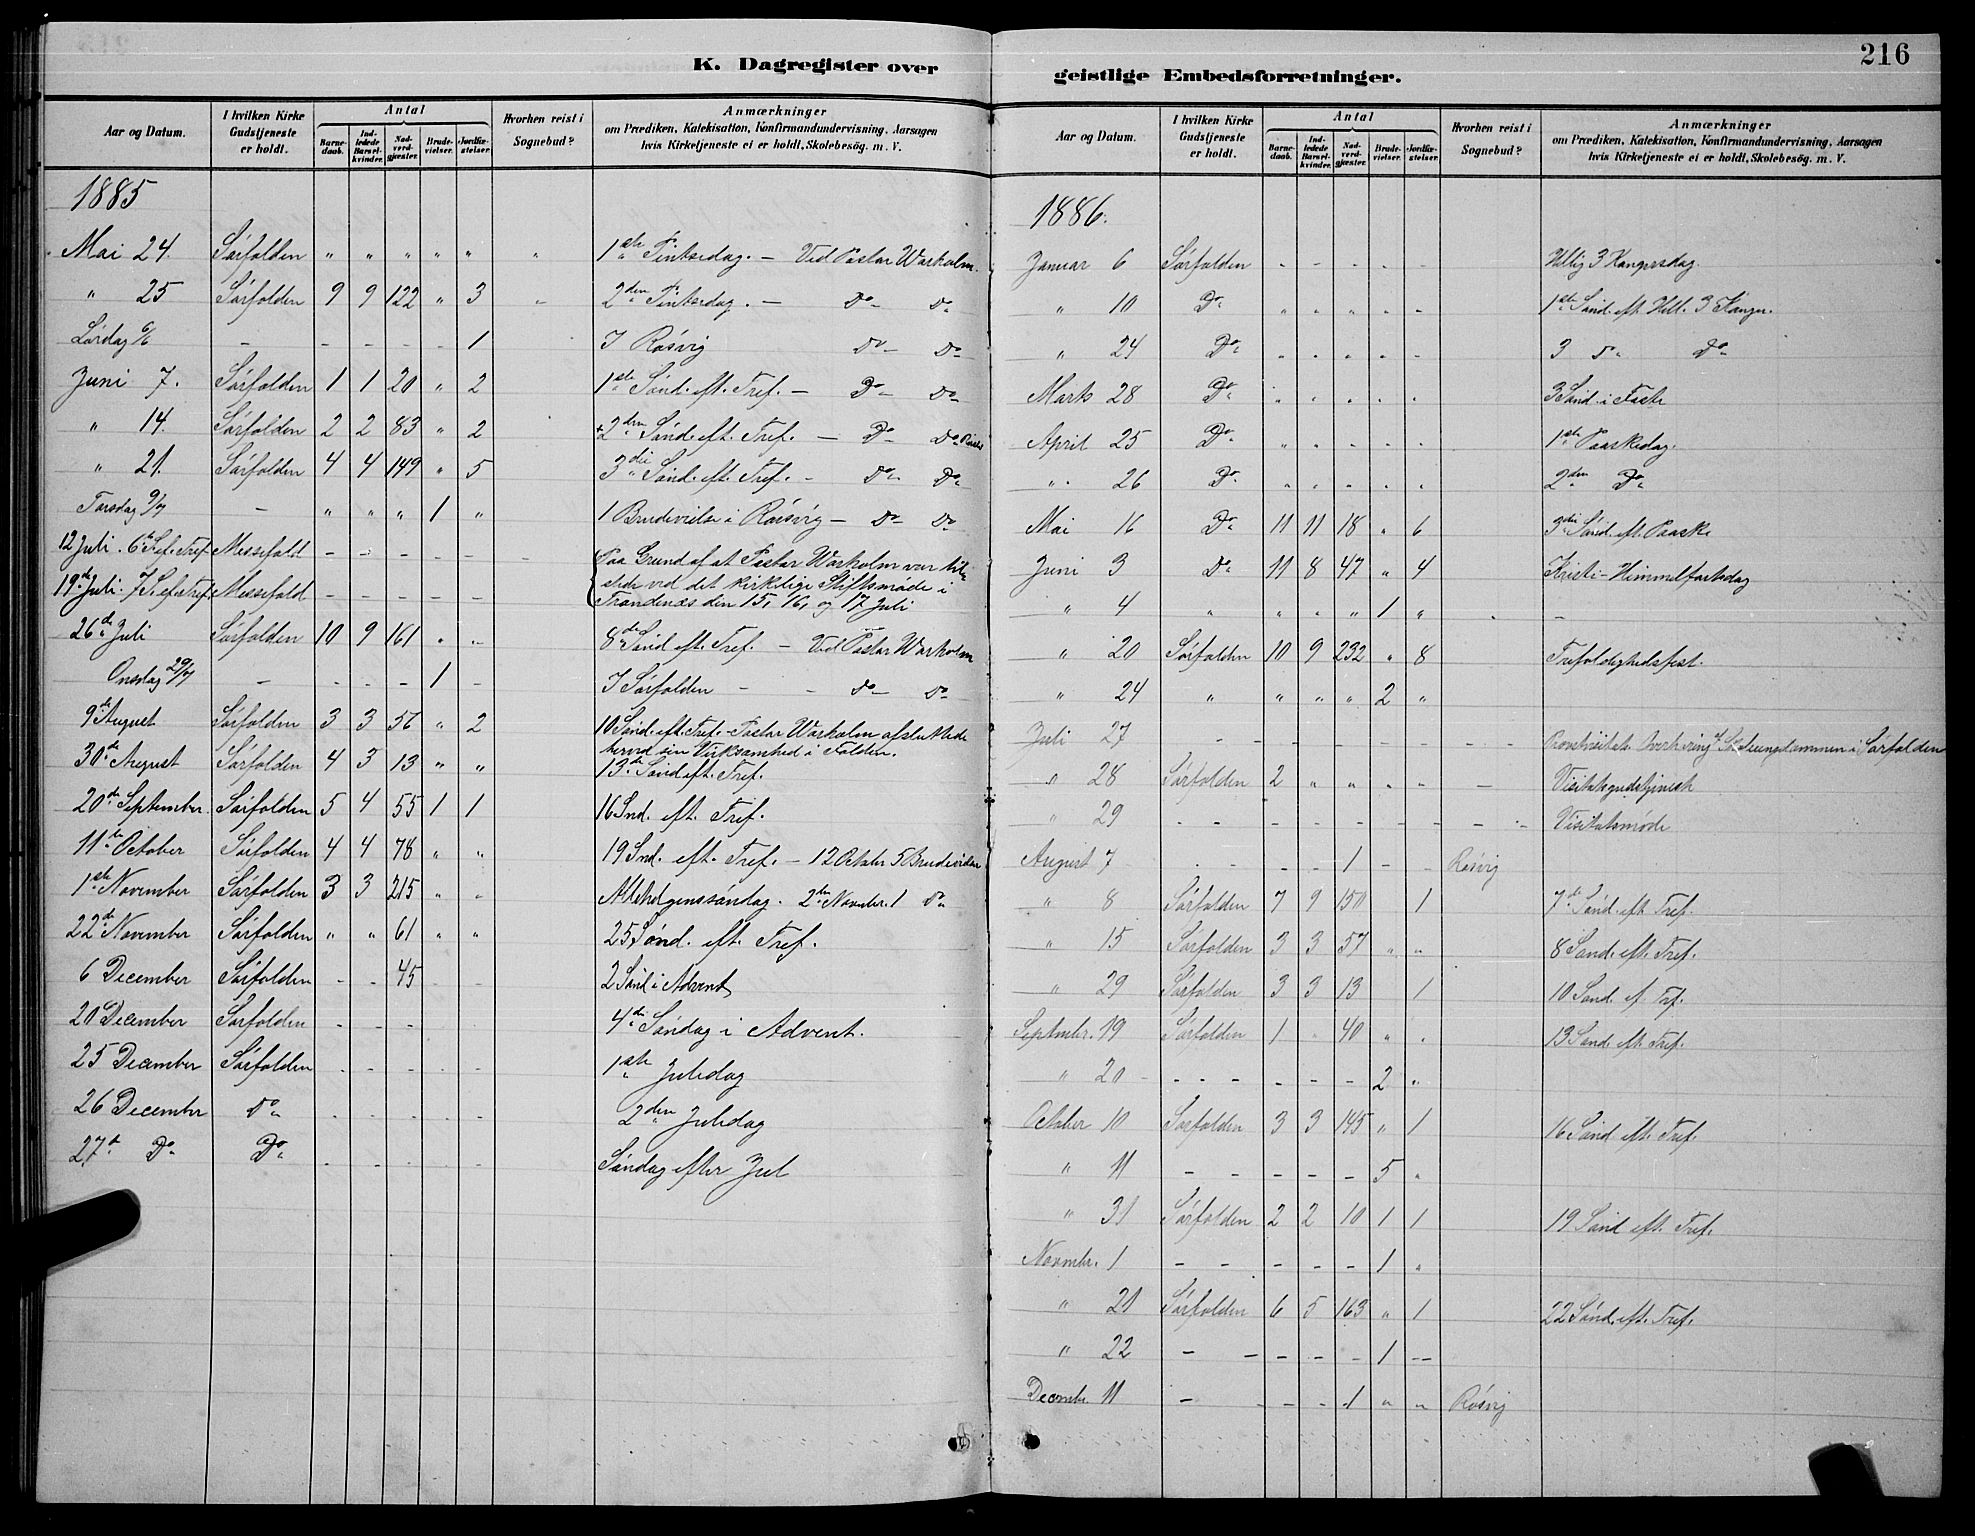 216
K. Dagregister over geistlige Embedsforretninger.
Aar og Datum. I hvilken Kirke Gudstjeneste er holdt. Antal Barnedaab. Indledede Barselkvinder. Nadverdgjester. Brudevielser. Jordfæstelser. Hvorhen reist i Sognebud? Anmærkninger om Prædiken, Katekisation, Konfirmandundervisning, Aarsagen hvis Kirketjeneste ei er holdt, Skolebesög. m. V.
1885
Mai 24. Sørfolden " " " " " " 1ste Pintsedag. — Ved Pastor Warholm.
" 25 Sørfolden 9 9 122 " 3 " 2den Pintsedag. — Do — Do
Lørdag 6/6 - - - - - 1 I Røsvig Do — Do
Juni 7. Sørfolden 1 1 20 " 2 1ste Sønd. eft. Tref. — Do — Do
" 14. Sørfolden 2 2 83 " 2 2den Sønd. eft. Tref. — Do — Do
" 21. Sørfolden 4 4 149 " 5 3die Sønd. eft. Tref. — Do — Do
Torsdag 9/7 - " " " 1 " 1 Brudevielse i Røsvig — Do — Do
12 Juli. 6te S. ef. Tref. Messefald - - - - - - Paa Grund af at Pastor Warholm var til-
19de Juli. 7 S. ef. Tref. Messefald - - - - - stede ved det kirkelige Stiftsmøde i
Trondenæs den 15, 16, og 17 Juli
26de Juli Sørfolden 10 9 161 " " 8de Sønd eft. Tref. — Ved Pastor Warholm
Onsdag 29/7 - - - - 1 - I Sørfolden - - Do — Do
9de August Sørfolden 3 3 56 " 2 10 Sønd. eft. Tref. - Pastor Warholm afsluttede
herved sin Virksomhed i Folden.
30de August Sørfolden 4 3 13 " " 13de Sønd eft. Tref.
20de September. Sørfolden 5 4 55 1 1 16 Snd. eft. Tref.
11te October Sørfolden 4 4 78 " " 19 Snd. eft. Tref. — 12 October 5 Brudevielser
1ste November Sørfolden 3 3 215 " " Allehelgenssøndag. 2den Novmbr. 1 Do
22de November Sørfolden " " 61 " " 25 Sønd. eft. Tref.
6 December Sørfolden - - 45 - - 2 Sønd i Advent
20 December Sørfolden - - - - - 4de Søndag i Advent.
25 December Sørfolden - - - - - 1ste Juledag
26 December Do - - - - - 2den Juledag
27de Do Do - - - - - Søndag efter Jul
Aar og Datum. I hvilken Kirke Gudstjeneste er holdt. Antal Barnedaab. Indledede Barselkvinder. Nadverdgjester. Brudevielser. Jordfæstelser. Hvorhen reist i Sognebud? Anmærkninger om Prædiken, Katekisation, Konfirmandundervisning, Aarsagen hvis Kirketjeneste ei er holdt, Skolebesög. m. V.
1886.
Januar 6 Sørfolden - - - - - Hellig 3 Kongersdag.
" 10 Do " " " " - 1ste Sønd. eft. Hell. 3 Konger.
" 24 Do " " " " " 3 Do Do
Marts 28 Do " " " " " 3 Sønd. i Faste
April 25 Do " " " " " 1ste Paaskedag.
" 26 Do " " " " " 2den Do
Mai 16 Do 11 11 18 " 6 3die Sønd. eft. Paaske
Juni 3 Do 11 8 47 " 4 Kristi-Himmelfartsdag
" 4 " " " " 1 " " -
" 20 Sørfolden 10 9 232 " 8 Trefoldighedsfest.
" 24 " " " " 2 "
Juli 27 - - - - - - - i Sørfolden
" 28 Sørfolden 2 " " " - - Visitatsgudstjeneste
" 29 - - - - - - - Visitatsmøde
August 7 - - - 1 - - Røsvig
" 8 Sørfolden 7 9 150 1 7de Sønd. eft Tref.
" 15 Sørfolden 3 3 57 " " 8 Sønd. eft. Tref.
" 29 Sørfolden 3 3 13 1 10 Sønd. ef. Trf.
Septmbr. 19 Sørfolden 1 " 40 " " 13 Sønd. eft. Tref.
" 20 - - - - - - 2 "
October 10 Sørfolden 3 3 145 " 1 16 Sønd. eft. Tref.
" 11 - - - - - 5 "
" 31 Sørfolden 2 2 10 1 1 19 Sønd eft. Tref.
Novmbr. 1 - - - - - 1 "
" 21 Sørfolden 6 5 163 " 1 22 Sønd. eft. Tref.
" 22 - - - - - 1 -
Decmbr. 11 - - - - 1 " " Røsvig